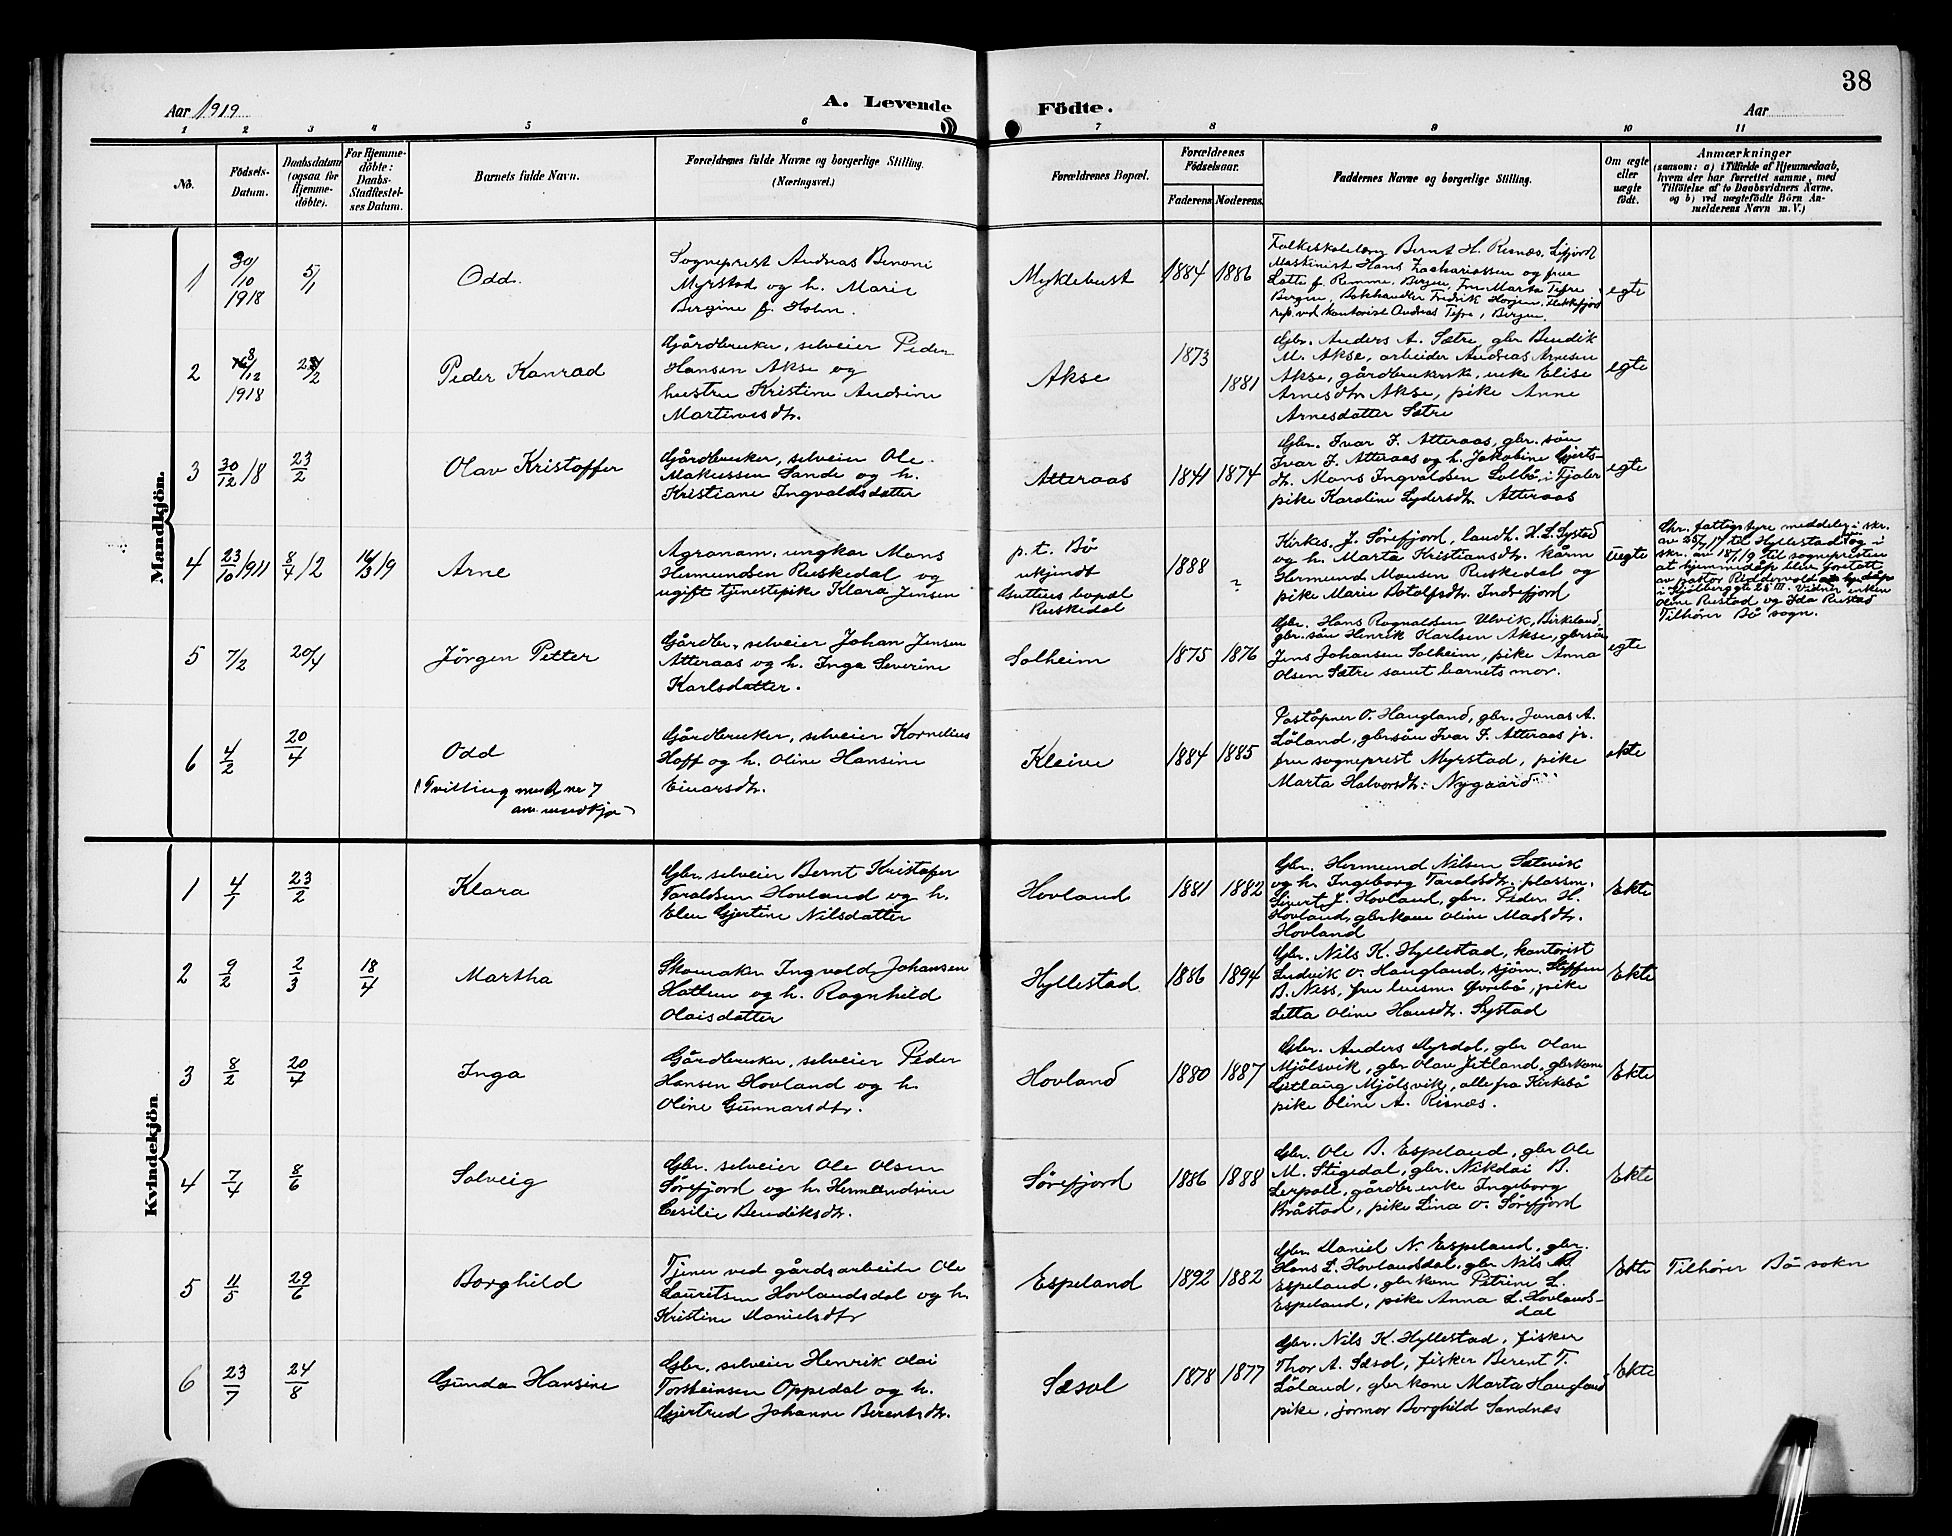 38
Aar 1919
A. Levende
Födte.
Aar
1 2 3 4 5 6 7 8 9 10 11
No.
Födsels-
Datum.
Daabsdatum
(ogsaa for
Hjemme-
döbte).
For Hjemme-
döbte:
Daabs-
Stadfæstel-
ses Datum.
Barnets fulde Navn.
Forældrenes fulde Navne og borgerlige Stilling.
(Næringsvei.)
Forældrenes Bopæl.
Forældrenes
Födselsaar.
Faderens.
Moderens.
Faddernes Navne og borgerlige Stilling.
Om ægte
eller
uægte
födt.
Anmærkninger
(saasom: a) i Tilfælde af Hjemmedaab,
hvem der har forrettet samme, med
Tilföielse af to Daabsvidners Navne,
og b) ved uægtefödte Börn An-
melderens Navn m. V.)
Mandkjön.
1
30/10
1918
5/1
Odd.
Sogneprest Andreas Benoni
Myrstad og h. Marie
Bergine f. Holm.
Myklebust
1884
1886
Bernt H. Risnæs, Lifjord
Maskinist Hans Zachariassen og frue
Lotte f. Remme, Bergen, Fru Marta Tefre
Bergen, Bokhandler Fredrik Horjen, Flekkefjord
rep. ved kontorist Andreas Tefre, Bergen.
egte
2
8/12
1918
23/2
Peder Konrad
Gårdbruker, selveier Peder
Hansen Akse og
hustru Kristine Andrine
Martinusdtr.
Akse
1873
1881
Gbr. Anders A. Sætre, gbr Bendik
M. Akse, arbeider Andreas Arnesen
Akse, gårdbrukersk. enke Elise
Arnesdtr. Akse, pike Anne
Arnesdatter Sætre
egte
3
30/12 18
23/2
Olav Kristoffer
Gårdbruker, selveier Ole
Makussen Sande og h.
Kristiane Ingvaldsdatter
Atteraas
1841
1874
Gbr. Ivar J. Atteraas, gbr. sön
Ivar J. Atteraas og h. Jakobine Gjerts-
dtr. Mons Ingvaldsen i Fjaler
pike Karoline Lydersdtr. Atteraas
egte
4
23/10 1911
8/4 12
16/3 19
Arne
Agronom, ungkar Mons
Hermundsen Ruskedal og
ugift tjenestepike Klara Jensen
p.t. Bö
ukjendt
Guttens bopæl
Ruskedal
1888
?
Kirkes. J. Sörefjord, landh. H. L. Systad
og h. Marta Kristiansdtr. kårm
Hermund Monsen Ruskedal og
pike Marie Indrefjord
uegte
Chr. fattigstyre meddeler i skr.
av 25/7 17 til Hyllestad og i
skr. av 18/1 19 til sognepresten
at hjemmedåp blev foretatt
av pastor Riddervold
i Kjölberggt 28 III. Vidner enken
Oline Rustad og Ida Rustad
Tilhörer Bö sogn.
5
7/2
20/4
Jörgen Petter
Gårdbr. selveier Johan Jensen
Atteraas og h. Inga Severine
Karlsdatter.
Solheim
1875
1876
Gbr. Hans Rognaldsen Ulvik, Birkeland,
gbr. sön Henrik Karlsen Akse, gbr sön
Jens Johansen Solheim, pike Anna
Olsen Sætre samt barnets mor.
egte
6
4/2
20/4
Odd
(Tvilling med nr 7
av mandkjön)
Gårdbruker, selveier Kornelius
Hoff og h. Oline Hansine
Einarsdtr.
Kleive
1884
1885
Poståpner O. Haugland, gbr. Jonas A.
Löland, gbr sön Ivar J. Atteraas jr.
fru sogneprest Myrstad, pike
Marta Halvorsdtr. Nygaard
ekte
Kvindekjön
1
4/1
23/2
Klara
Gbr. selveier Bernt Kristofer
Taraldsen Hovland og h.
Elen Gjertine Nilsdatter
Hovland
1881
1882
Gbr. Hermund Nilsen Sætevik
og h. Ingeborg Taraldsdtr. plassm.
Sivert J. Hovland, gbr. Peder H.
Hovland, gbr kone Oline Madsdtr.
Hovland
Ekte
2
9/2
2/3
18/4
Martha
Skomaker Ingvald Johansen
Hatlem og h. Ragnhild
Olaisdatter
Hyllestad
1886
1894
Gbr. Nils K. Hyllestad, kontorist
Ludvik O. Haugland, sjöm. Steffen
B. Ness, fru lensm. Övrebö, pike
Letta Oline Hansdtr. Systad
Ekte
3
8/2
20/4
Inga
Gårdbruker, selveier Peder
Hansen Hovland og h.
Oline Gunnarsdtr.
Hovland
1880
1887
Gbr. Anders Myrdal, gbr Olav
Mjölsvik, gbr Olav Jetland, gbr kone
Gitlaug Mjölsvik, alle fra Kirkebö
pike Oline A. Risnæs.
Ekte
4
7/4
8/6
Solveig
Gbr. selveier Ole Olsen
Sörefjord og h. Hermundsine
Cesilie Bendiksdtr.
Sörefjord
1886
1888
Gbr. Ole B. Espeland, gbr Ole
M. Stigedal, gbr. Nikolai B.
Lerpoll, gårdbr. enke Ingeborg
Bråstad, pike Lina O. Sörefjord
Ekte
5
11/5
29/6
Borghild
Tjener ved gårdsarbeide Ole
Lauritsen Hovlandsdal og h.
Kristine Danielsdtr
Espeland
1892
1882
Gbr. Daniel N. Espeland, gbr.
Hans L. Hovlandsdal, gbr Nils M.
Espeland, gbr kone Petrine L.
Espeland, pike Anna L. Hovlands-
dal
Ekte
Tilhörer Bö sokn
6
23/7
24/8
Gunda Hansine
Gbr. selveier Henrik Olai
Torsteinsen Oppedal og h.
Gjertrud Johanne Berentsdtr.
Sæsol
1878
1877
Gbr. Nils K. Hyllestad, fisker
Thor A. Sæsol, fisker Berent T.
Löland, gbr kone Marta Haugland
pike, jormor Borghild Sandnæs
Ekte